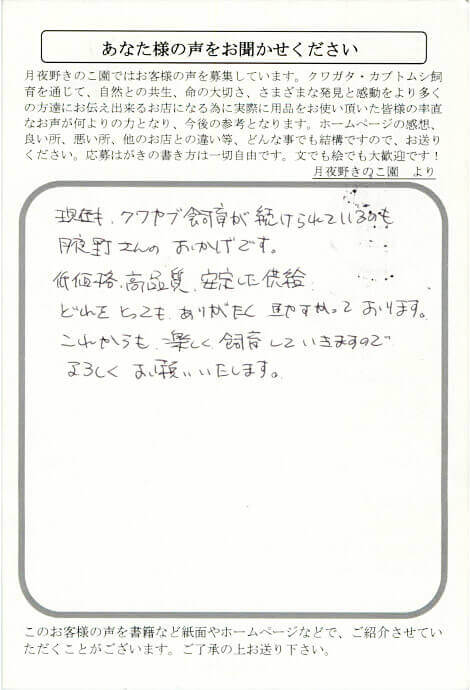 あなた様の声をお聞かせください
月夜野きのこ園ではお客様の声を募集しています。クワガタ・カブトムシ飼
育を通じて、自然との共生、命の大切さ、さまざまな発見と感動をより多く
の方達にお伝え出来るお店になる為に実際に用品をお使い頂いた皆様の率直
なお声が何よりの力となり、今後の参考となります。ホームページの感想、
良い所、悪い所、他のお店との違い等、どんな事でも結構ですので、お送り
ください。応募はがきの書き方は一切自由です。文でも絵でも大歓迎です！
月夜野きのこ園 より
現在も、クワカブ飼育が続けられているのも
月夜野さんのおかげです。
低価格、高品質、安定した供給
どれをとっても、ありがたく助かっております。
これからも、楽しく飼育していきますので
よろしくお願いいたします。
このお客様の声を書籍など紙面やホームページなどで、ご紹介させてい
ただくことがございます。ご了承の上お送り下さい。